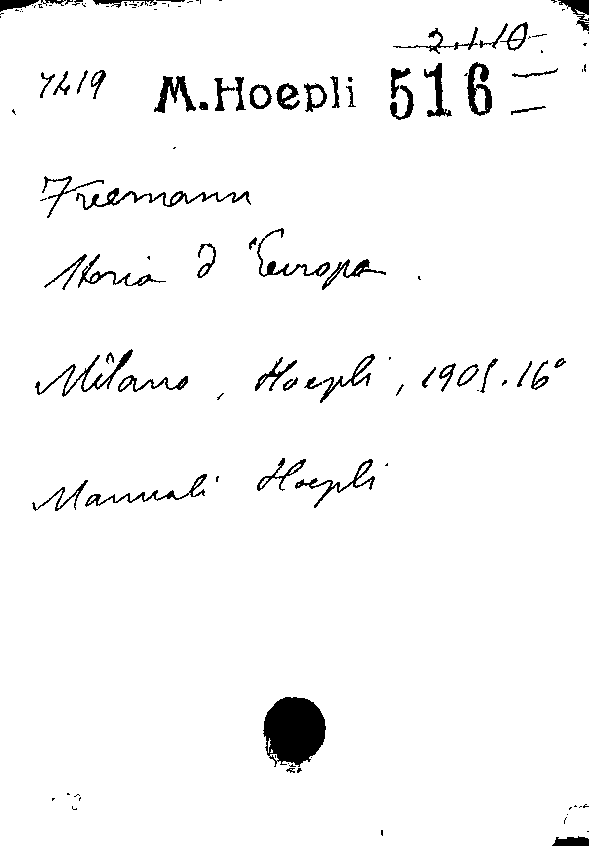 2.1.10
7419 M.Hoepli 516
Freemann
Storia d'Europa.
Milano, Hoepli, 1905.16°
Manuali Hoepli